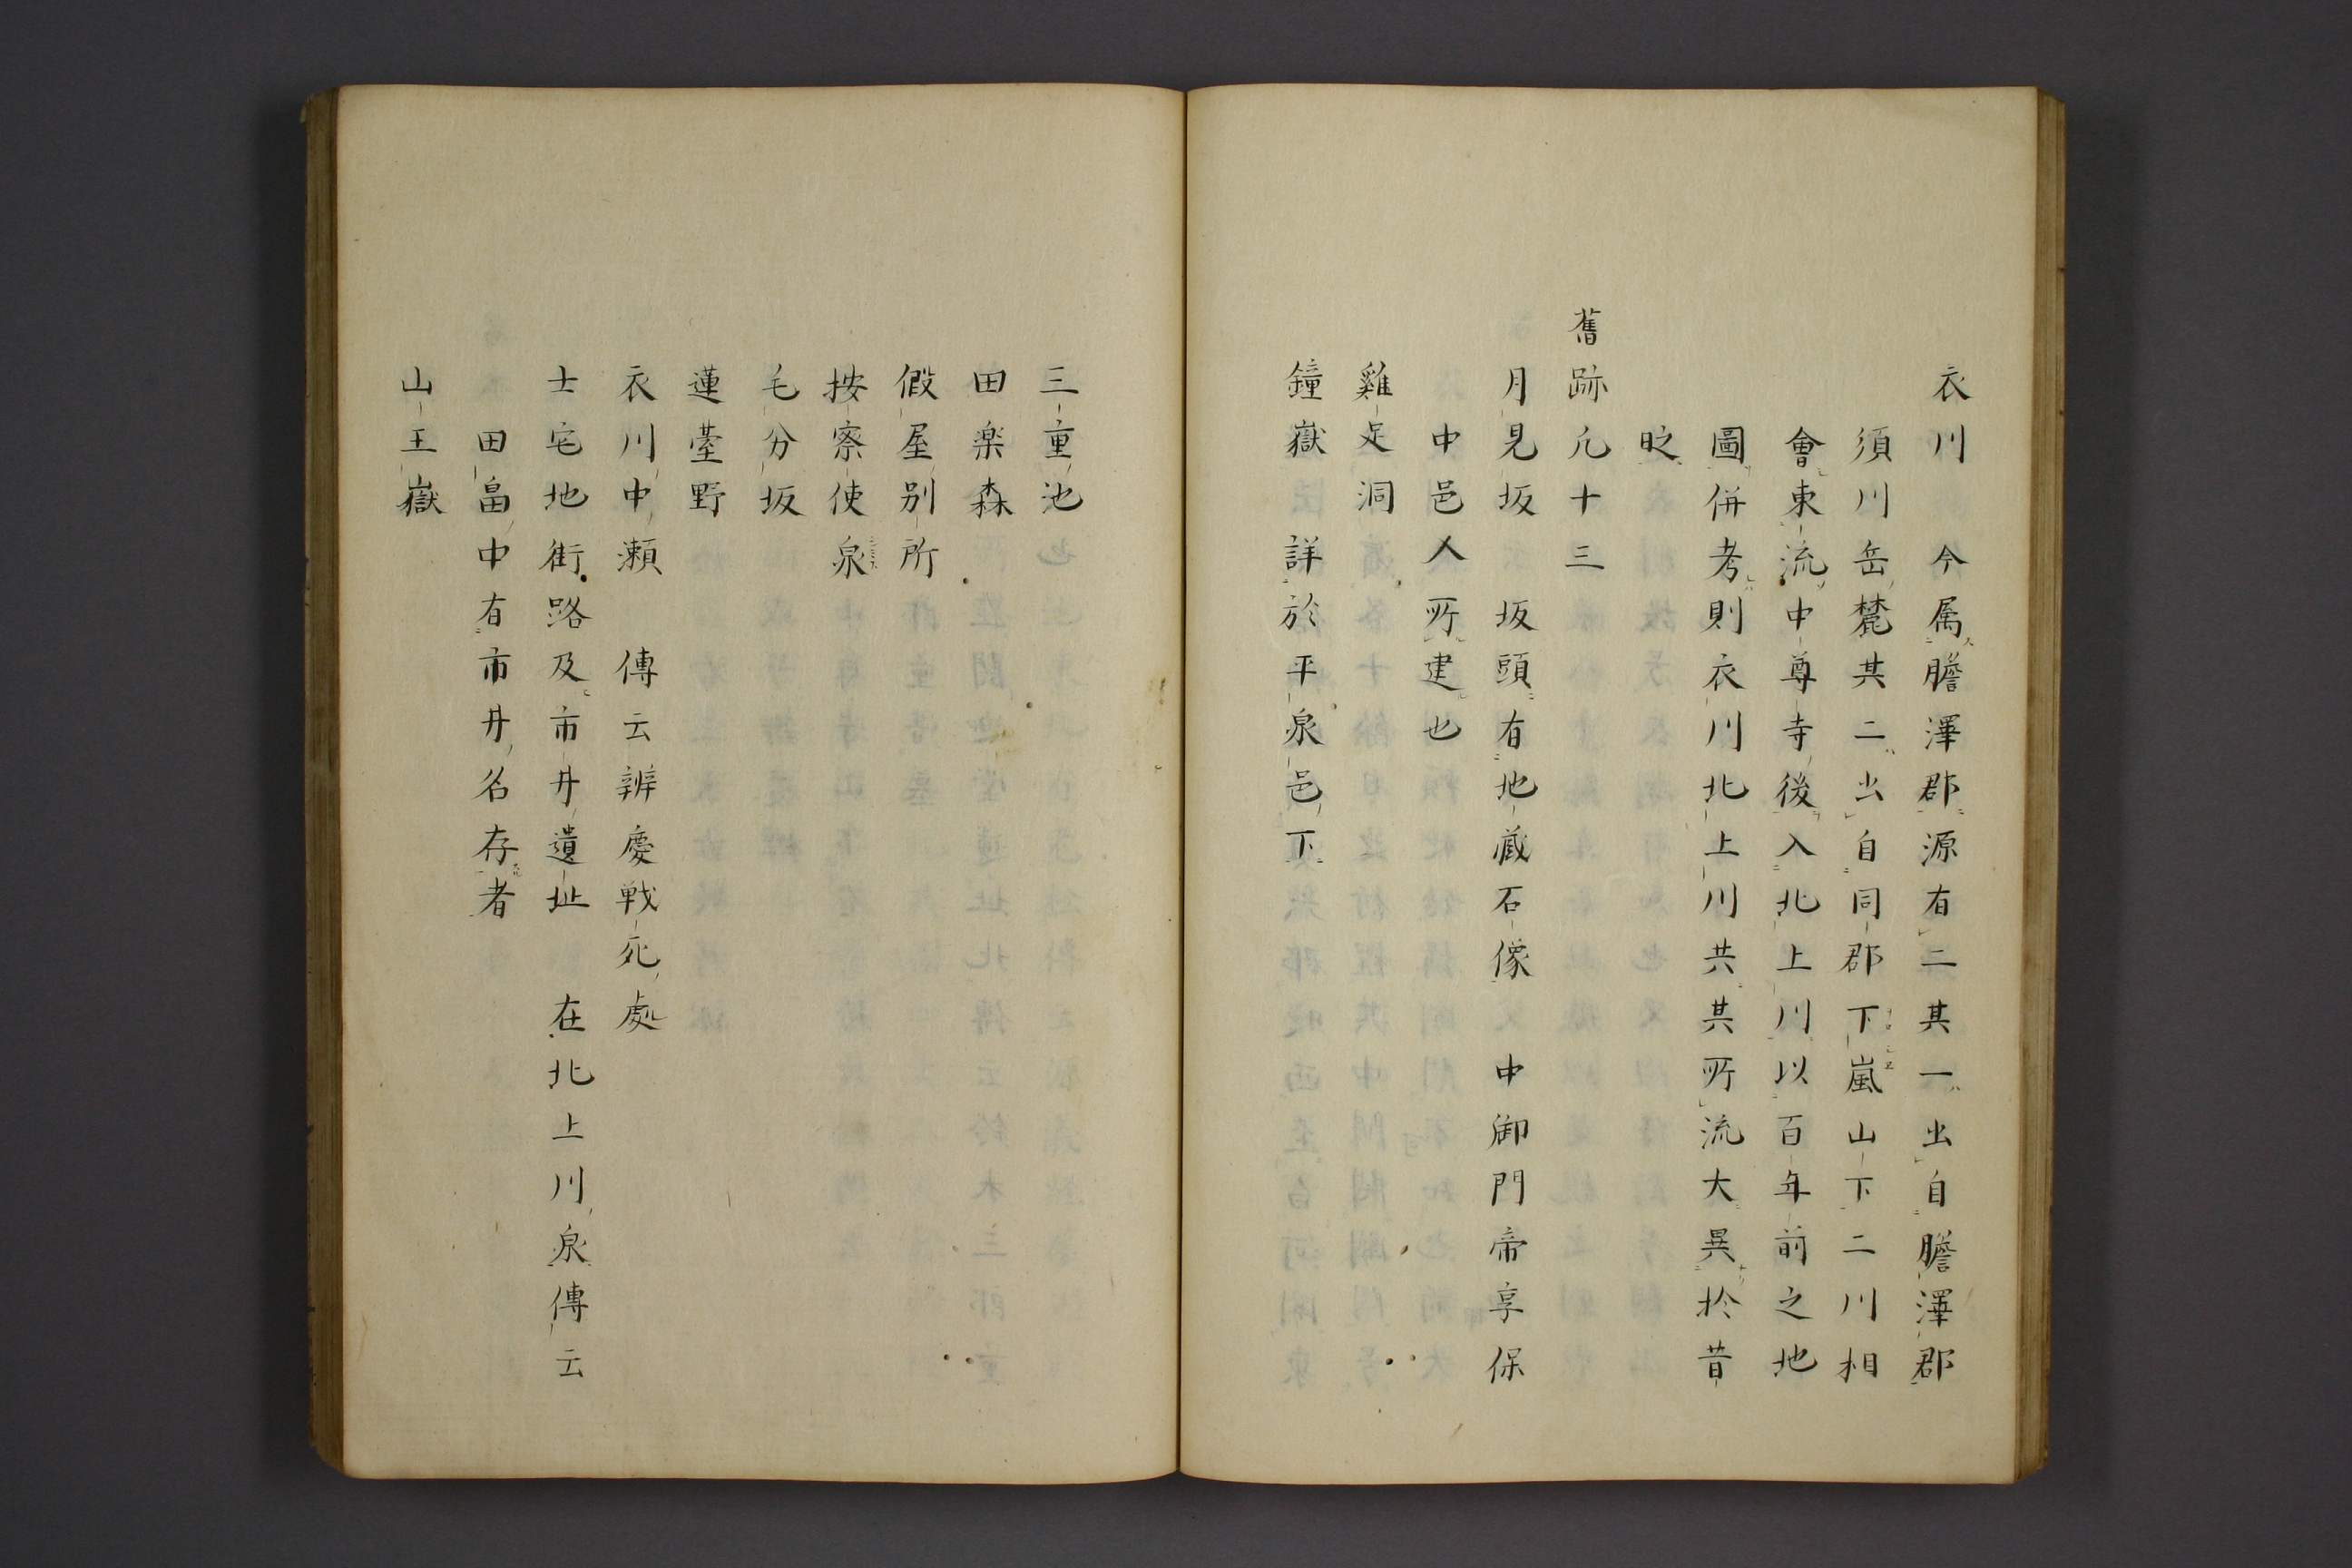 衣川　今属膽澤郡源有二其一出自膽澤郡
須川岳麓其二出自同郡下嵐山下二川相
會東流中尊寺後入北上川以百年前之地
圖併考則衣川北上川共其所流大異於昔
時
舊跡凢十三
月見坂　坂頭有地藏石像　中御門帝享保
中邑人所建也
雞足洞
鐘嶽　詳於平泉邑下
三重池
田楽森
假屋別所
按察使泉
毛分坂
蓮臺野
衣川中瀬　傳云辨慶戦死處
士宅地街路及市井遺址　在北上川泉傳云
田畠中有市井名存者
山王嶽